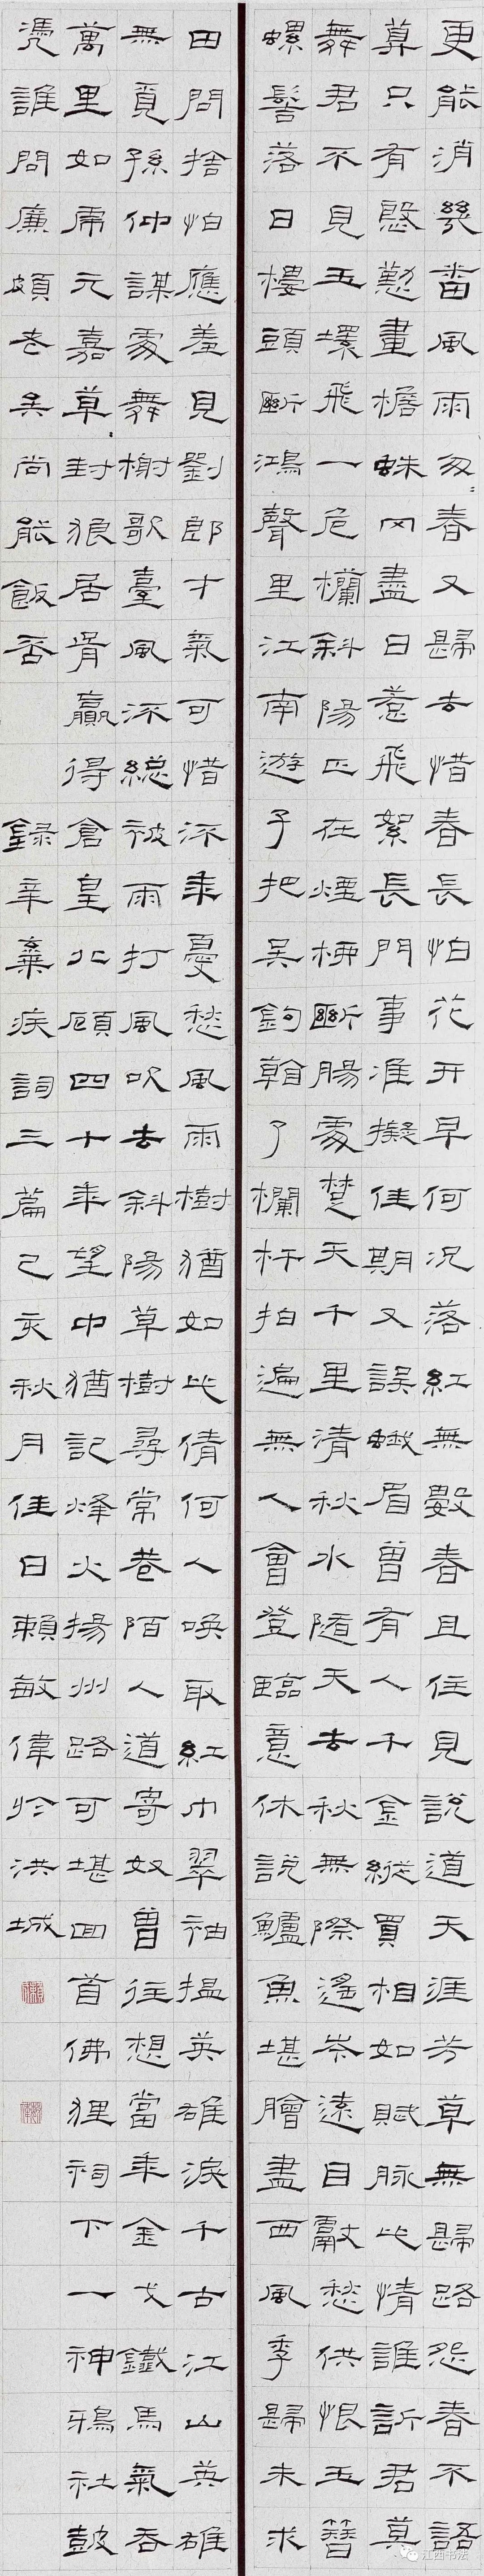 更能消幾番風雨匆〻春又歸去惜春長怕花开早何況落紅無數春且住見說道天涯芳草無歸路怨春不語
算只有慇懃畫檐蛛网盡日惹飛絮長門事准擬佳期又誤蛾眉曾有人千金縱買相如賦脉此情誰訴君莫
舞君不見玉環飛一危欄斜陽正在煙柳斷腸處楚天千里清秋水隨天去秋無際遙岑遠目獻愁供恨玉簪
螺髻落日樓頭斷鴻聲里江南遊子把吳鉤看了欄杆拍遍無人會登臨意休說鱸魚堪膾盡西風季歸未求
田問捨怕應羞見劉郎才氣可惜流年憂愁風雨樹猶如此倩何人喚取紅巾翠袖揾英雄淚千古江山英雄
無覓孫仲謀處舞榭歌臺風流總被雨打風吹去斜陽草樹尋常巷陌人道寄奴曾住想當年金戈鐵馬氣吞
萬里如虎元嘉草〻封狼居胥贏得倉皇北顧四十年望中猶記烽火揚州路可堪回首佛狸祠下一神鴉社鼓
憑誰問廉頗老矣尚能飯否 錄辛棄疾詞三篇己亥秋月佳日賴敏偉於洪城
江西书法